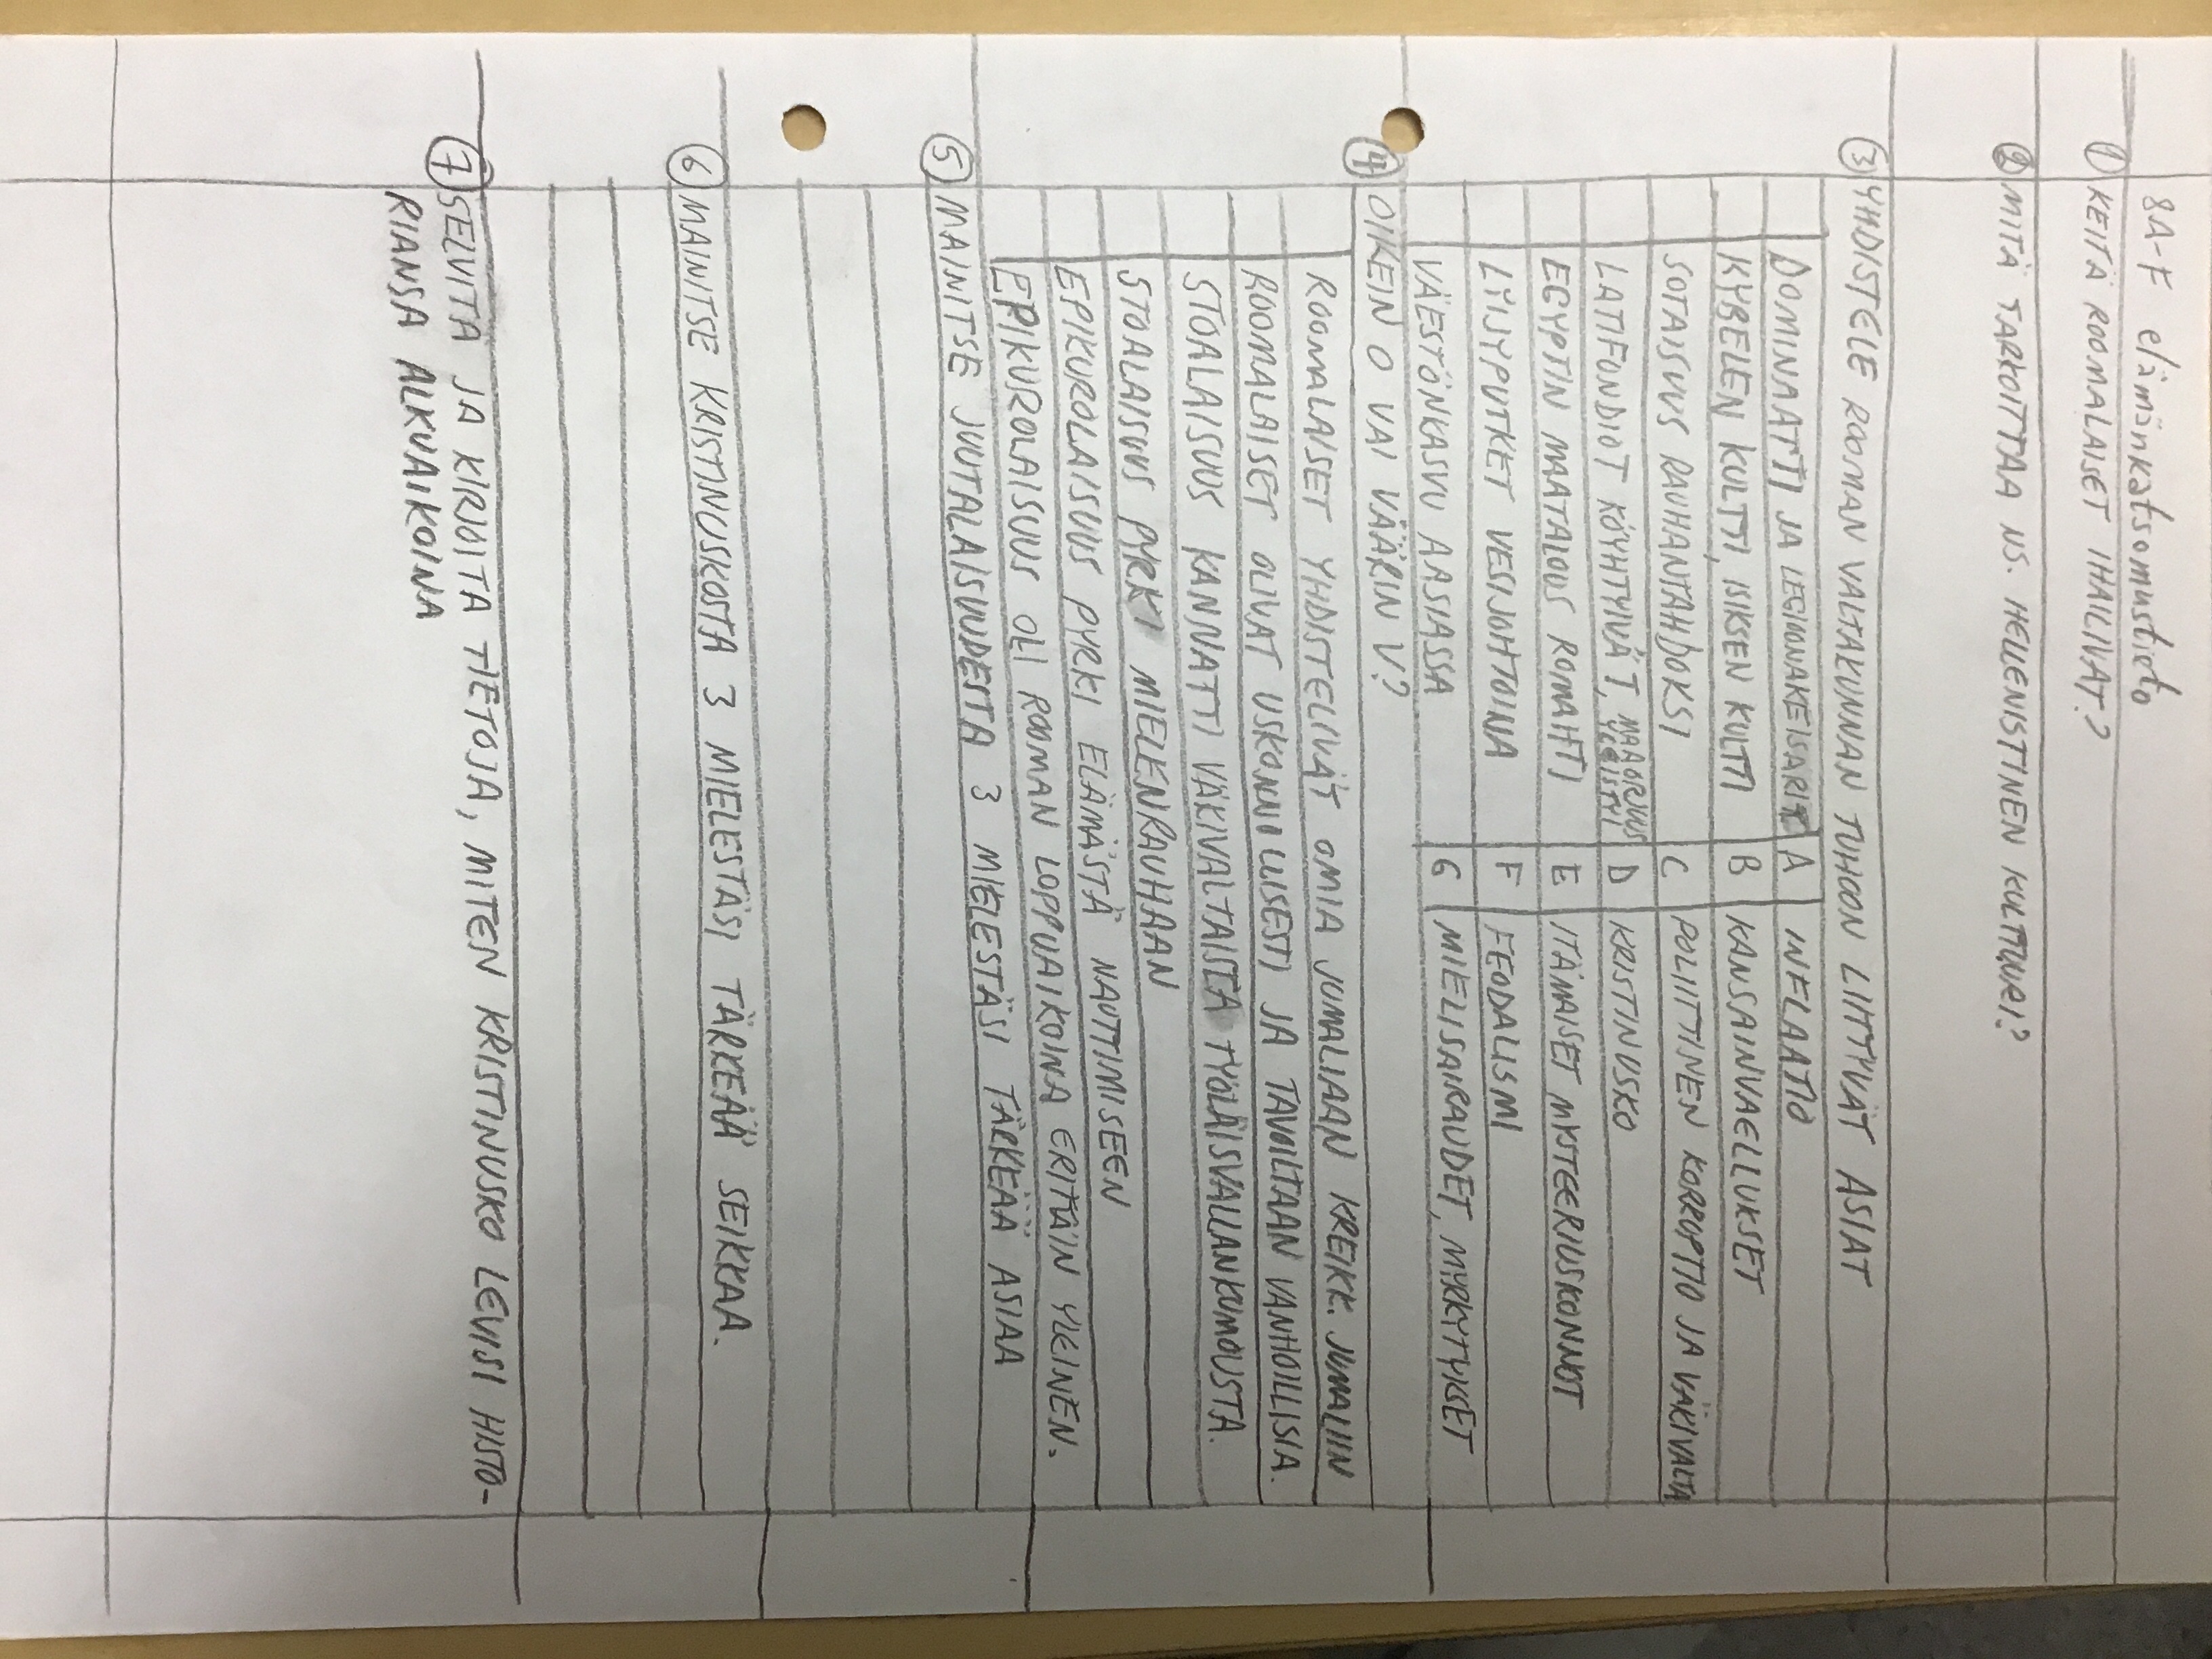 8A-F elämänkatsomustieto
① KEITÄ ROOMALAISET IHAILIVAT?
② MITÄ TARKOITTAA NS. HELLENISTINEN KULTTUURI?
③ YHDISTELE ROOMAN VALTAKUNNAN TUHOON LIITTYVÄT ASIAT
DOMINAATTI JA LEGIOONAKEISARIT A INFLAATIO
KYBELEN KULTTI, ISIKSEN KULTTI B KANSAINVAELLUKSET
SOTAISUUS RAUHANTAHDOKSI C POLIITTINEN KORRUPTIO JA VÄKIVALTA
LATIFUNDIOT KÖYHTYIVÄT, MAAORJUUS YLEISTYI D KRISTINUSKO
EGYPTIN MAATALOUS ROMAHTI E ITÄMAISET MYSTEERIUSKONNOT
LYIJYPUTKET VESIJOHTOINA F FEODALISMI
VÄESTÖNKASVU AASIASSA G MIELISAIRAUDET, MYRKYTYKSET
④ OIKEIN O VAI VÄÄRIN V?
ROOMALAISET YHDISTELIVÄT OMIA JUMALIAAN KREIKK. JUMALIIN
ROOMALAISET OLIVAT USKONNOLLISESTI JA TAVOILTAAN VANHOILLISIA.
STOALAISUUS KANNATTI VÄKIVALTAISTA TYÖLÄISVALLANKUMOUSTA.
STOALAISUUS PYRKI MIELENRAUHAAN
EPIKUROLAISUUS PYRKI ELÄMÄSTÄ NAUTTIMISEEN
EPIKUROLAISUUS OLI ROOMAN LOPPUAIKOINA ERITTÄIN YLEINEN.
⑤ MAINITSE JUUTALAISUUDESTA 3 MIELESTÄSI TÄRKEÄÄ ASIAA
⑥ MAINITSE KRISTINUSKOSTA 3 MIELESTÄSI TÄRKEÄÄ SEIKKAA.
⑦ SELVITÄ JA KIRJOITA TIETOJA, MITEN KRISTINUSKO LEVISI HISTO-
RIANSA ALKUAIKOINA